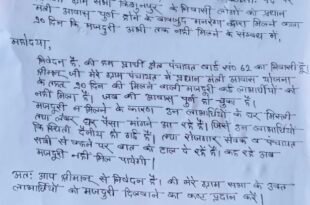 ग्राम सभा किशुनपुर के निवासी लोगो का प्रधान
मंत्री आवास पूर्ण होने के बावजूद मनरेगा द्वारा मिलने वाला
90 दिन कि मजदुरी अभी तक नही मिलने के सम्बन्ध में.
महोदया,
निवेदन है. की हम प्रार्थी क्षेत्र पंचायत वार्ड सं0 62 का निवासी हूँ।
श्रीमान जी मेरे ग्राम पंचायत में प्रधान मंत्री आवास योजना
के तहत 90 दिन की मिलने वाली मजदुरी कई लाभार्थियों को
नही मिला है। जब की आवास पुर्ण हो चुका है।
मजदुरी न मिलने के कारण उन लाभार्थियों के घर मिस्त्री
तथा लेबर पैसा मांगने आ रहे हैं। जिसे उन लाभार्थियों
कि स्थिती दैनीय हो गई है। तथा रोजगार सेवक व पंचायत
सभी से कहने पर बात को टाल दे रहे हैं। कह रहे अब
मजदुरी नही मिल पायेगी।
अतः आप श्रीमान से निवेदन है। की मेरे ग्राम सभा के उक्त
लाभार्थियों को मजदुरी दिलवाने का कष्ट प्रदान करें।